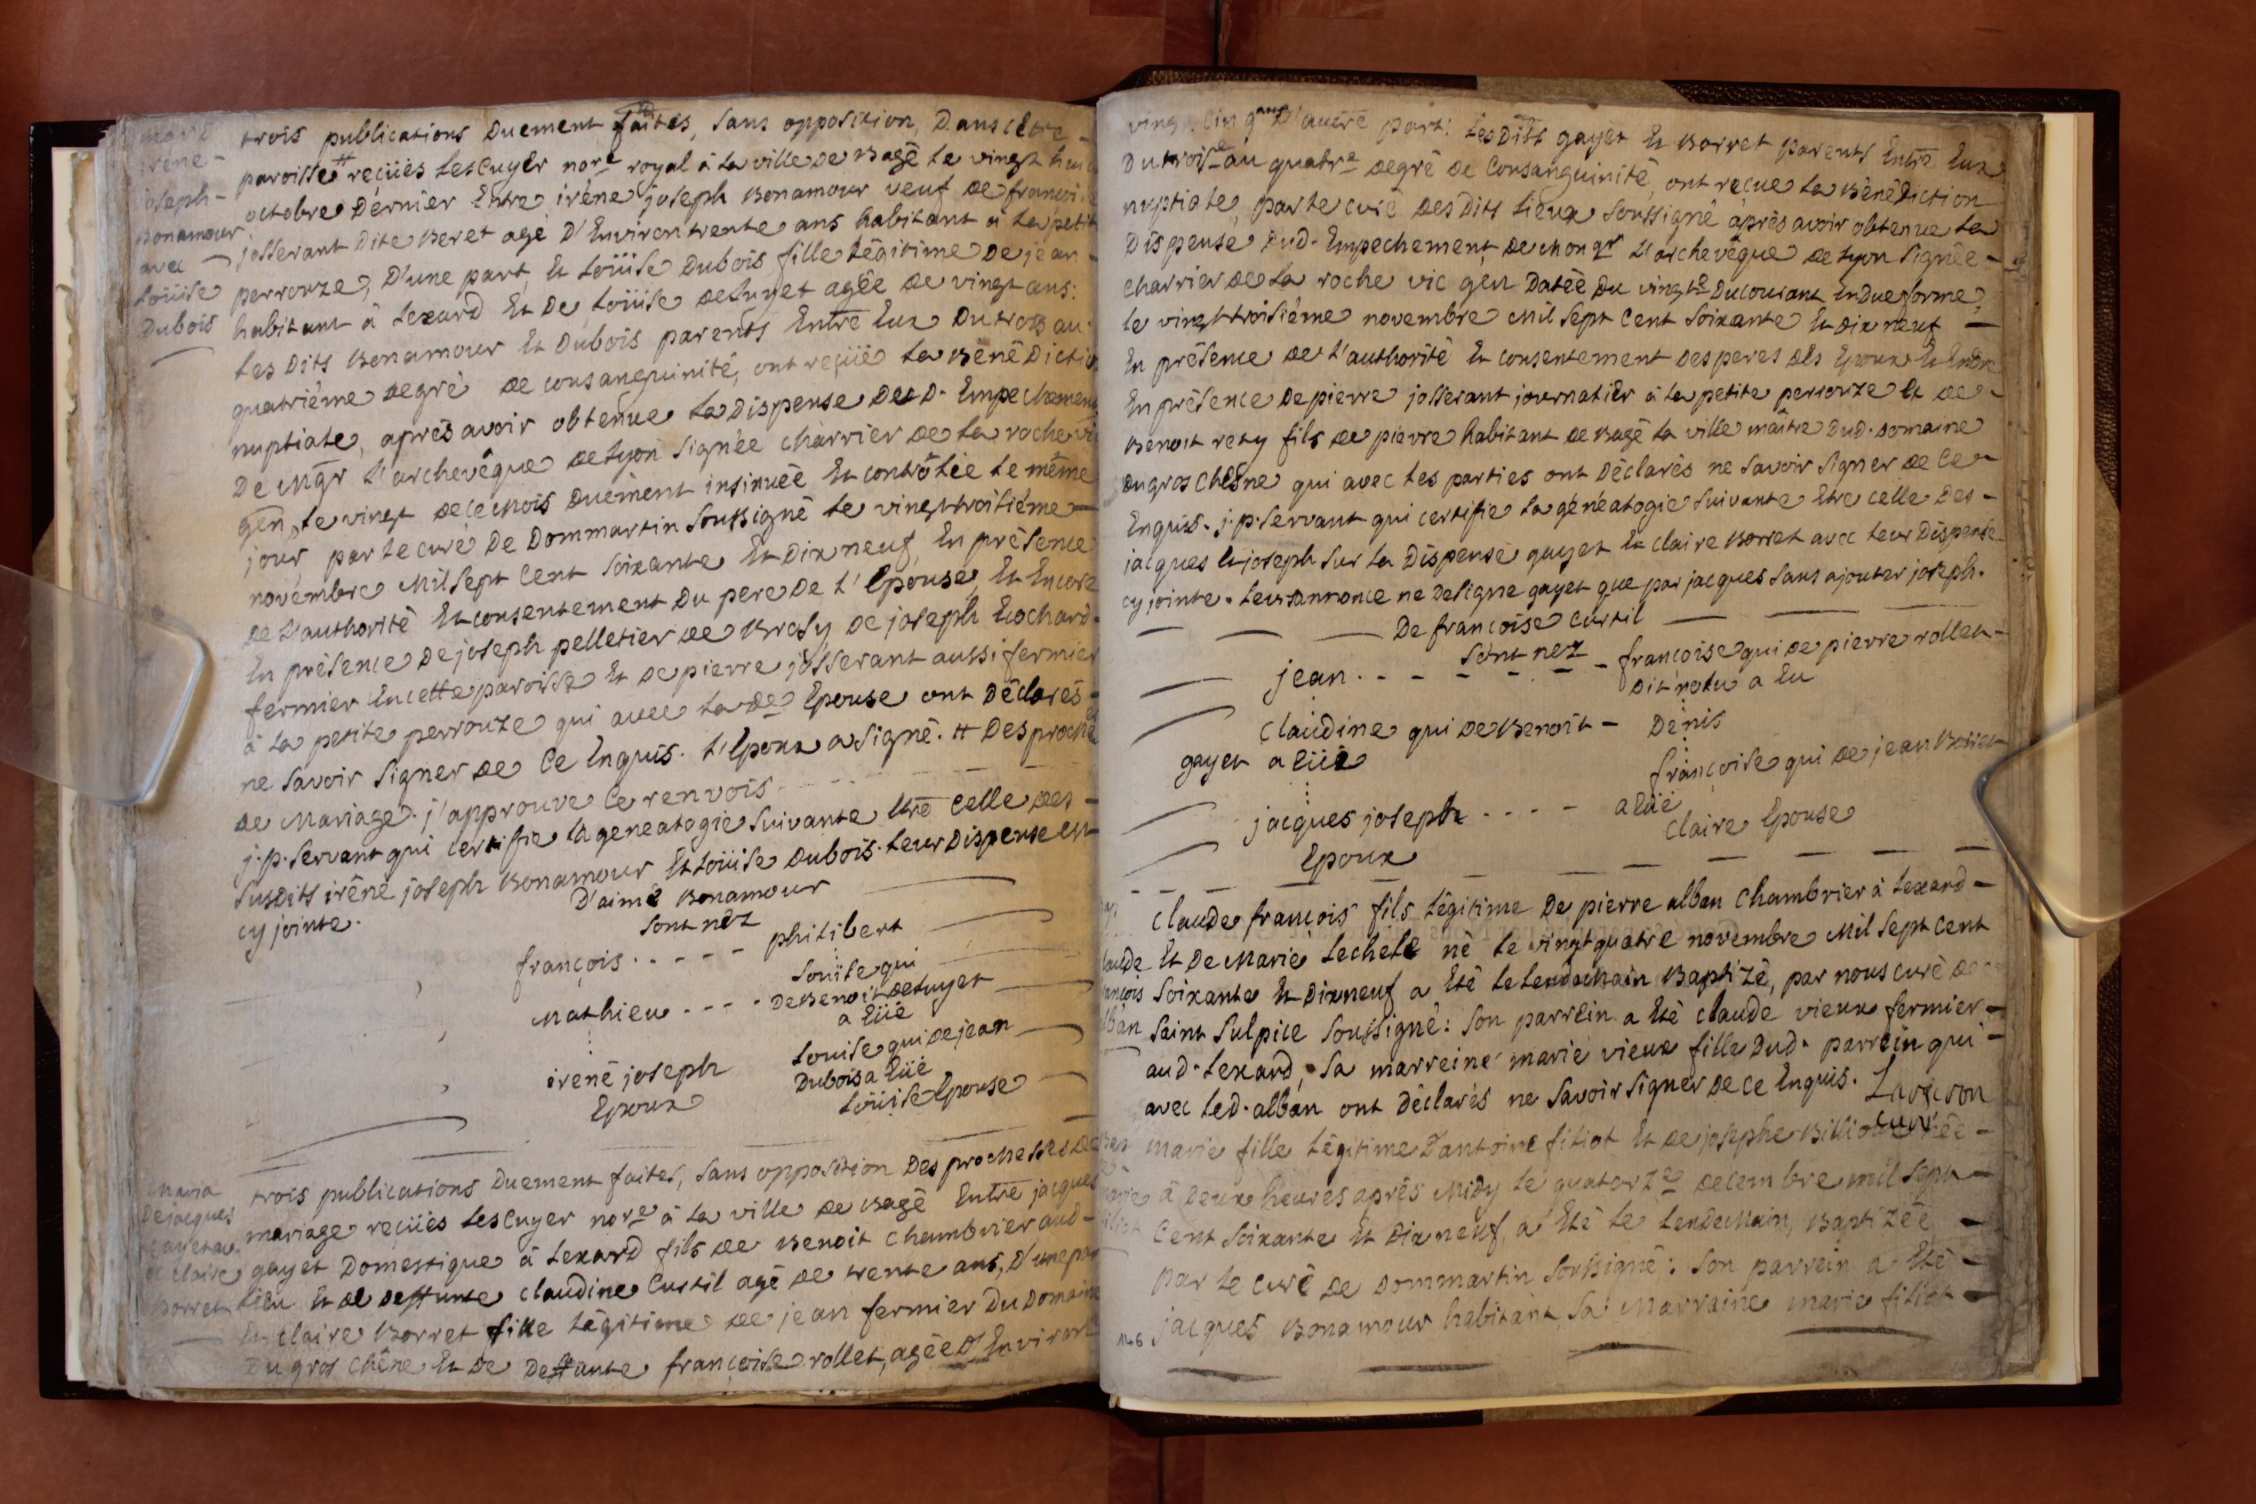 mari
irené
joseph
Bonamour
avec
Loüise
Dubois
trois publications Duement faites, sans opposition, Dans cette
paroisse # reçües Lescuyer nore royal à la ville de Bagé le vingt huit
octobre Dernier Entre irené joseph Bonamour veuf de francoise
josserant Dite Beret agé D'Environ trente ans habitant à la petite
perrouze, D'une part, Et Loüise Dubois fille Légitime De jean
habitant à Lexard Et De Loüise deluyet agée de vingt ans:
Les Dits Bonamour Et Dubois parents Entre Eux Du trois au
quatriéme degré de consanguinité, ont reçüe La Bénédiction
nuptiale, aprés avoir obtenue La Dispense Dud. Empechement
De Mgr L'archevêque de Lyon signée charrier de la roche vic
gen, Le vingt de ce Mois Duement insinuée Et contrôlée le même
jour, par le curé De Dommartin soussigné le vingt troisiéme
novembre Mil sept Cent soixante Et Dix neuf, En présence
de L'authorité Et consentement Du pere De L'Epouse, Et Encore
En présence De joseph pelletier de Bresy De joseph Eochard
fermier En cette paroisse Et De pierre josserant aussi fermier
à la petite perrouze qui avec la de Epouse ont Déclarés
ne savoir signer de Ce Enquis. L'Epoux a signé. # Des promesses
de Mariage. j'approuve Ce renvois
j. p. servant qui certifie La genealogie suivante Etre Celle des
susdits irêné joseph Bonamour Et Loüise Dubois. Leur Dispense est
cy jointe.
D'aimé Bonamour
sont nez
françois . . . . . philibert
Mathieu . . . . Loüise qui
De Benoit deluyet
a Eüe
irené joseph Louise qui de jean
Dubois a Eüe
Epoux Loüise Epouse
Maria
De jacques
gayet av
ec claire
Borret
trois publications Duement faites, sans opposition Des promesses de
mariage reçües Lescuyer nore à la ville de Bagé Entre jacques
gayet Domestique à Lexard fils de Benoit Chambrier aud
Lieu Et de deffunte claudine Curtil agé de trente ans, D'une part
Et claire Borret fille Légitime de jean fermier Du Domaine
Du gros Chêne Et de Deffunte françoise rollet, agée D'Environ
vingt Cinq ans D'autre part: Les Dits gayet Et Borret parents Entre Eux
Du troise au quatre degré de Consanguinité, ont reçue La Bénédiction
nuptiale, par le curé des Dits Lieux soussigné aprés avoir obtenue La
Dispense Dud. Empechement de Mongr L'archevêque de Lyon signée
charrier de La roche vic gen Datée Du vingte Du courant En Due forme,
le vingt troisiéme novembre Mil sept Cent soixante Et Dix neuf
En présence de L'authorité Et consentement Des peres des Epoux Et Encore
En présence De pierre josserant journalier à la petite perrouze Et de
Benoit rety fils de pierre habitant de Bagé La ville maître Dud. domaine
du gros Chesne qui avec Les parties ont Déclarés ne savoir signer de Ce
Enquis. j. p. servant qui certifie La généalogie suivante Etre celle Des
jacques Et joseph sur la Dispense gayet Et claire Borret avec leur Dispense
cy jointe. Leur annonce ne Designe gayet que par jacques sans ajouter joseph.
De françoise Curtil
sont nez
jean . . . . . . . françoise qui de pierre rollet
Dit notu a Eu
Claudine qui de Benoît Denis
gayet a Eüe françoise qui de jean Borret
jacques joseph . . . . a Eüe
Epoux Claire Epouse
claude
françois
alban
Claude françois fils Légitime De pierre alban Chambrier à Lexard
Et De Marie Lechele né Le vingt quatre novembre Mil sept Cent
Soixante Et Dix neuf a Eté Le Lendemain Baptizé, par nous curé De
saint Sulpice Soussigné: son parrein a Eté claude vieux fermier
aud. Lexard, sa marreine marie vieux fille Dud. parrein qui
avec Led. alban ont Déclarés ne savoir signer De Ce Enquis.
curé
marie fille Légitime D'antoine filiot Et de josephe née
à Deux heures aprés Midy le quatorze decembre mil sept
Cent Soixante Et Dix neuf, a Eté Le Lendemain, Baptizée,
par le curé De Dommartin Soussigné: Son parrein a Eté
jacques Bonamour habitant, Sa Marraine marie filiot